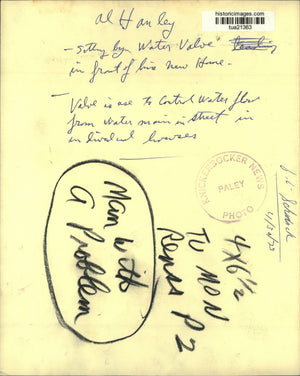 historicimages.com
tua21363
Al Hanley
- Sitting by Water Valve
in front of his new Home -
- Valve is use to Control Water flow
from Water main in street in
individual houses
KNICKERBOCKER NEWS
PALEY
PHOTO
Man With
A Problem
4x6½
TO MON
P 2